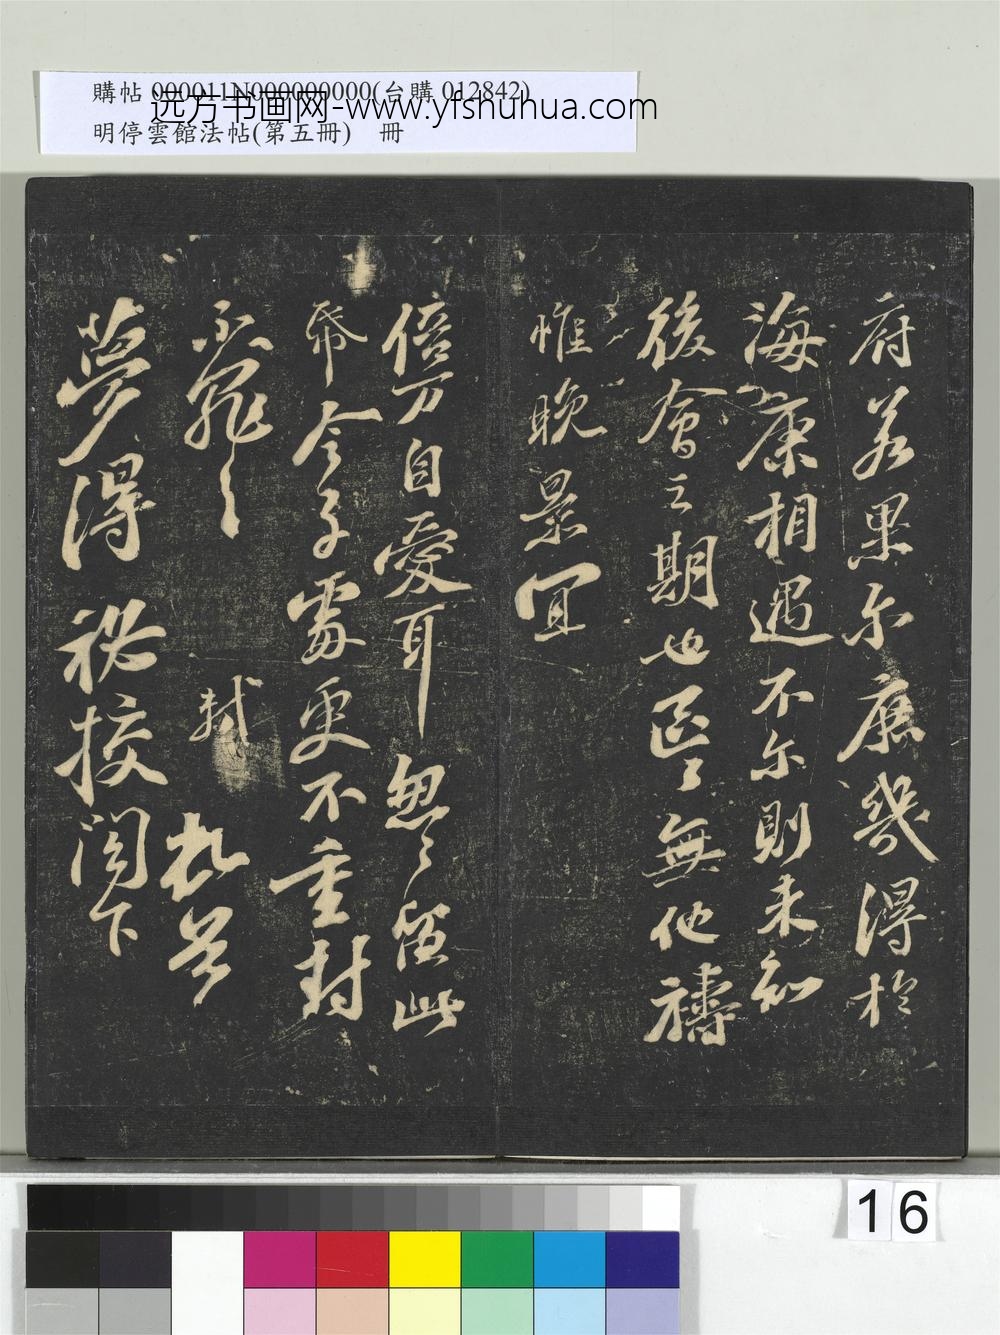 購帖 000011N000000000(台購 012842)
远方书画网-www.yfshuhua.com
明停雲館法帖(第五冊) 冊
府若果尔庶幾得於
海康相遇不尔則未知
後會之期也區〻無他禱
惟晚景宜
倍万自愛耳忽〻留此
帋令子處更不重封
不罪〻
軾 頓首
夢得祕校閣下
16